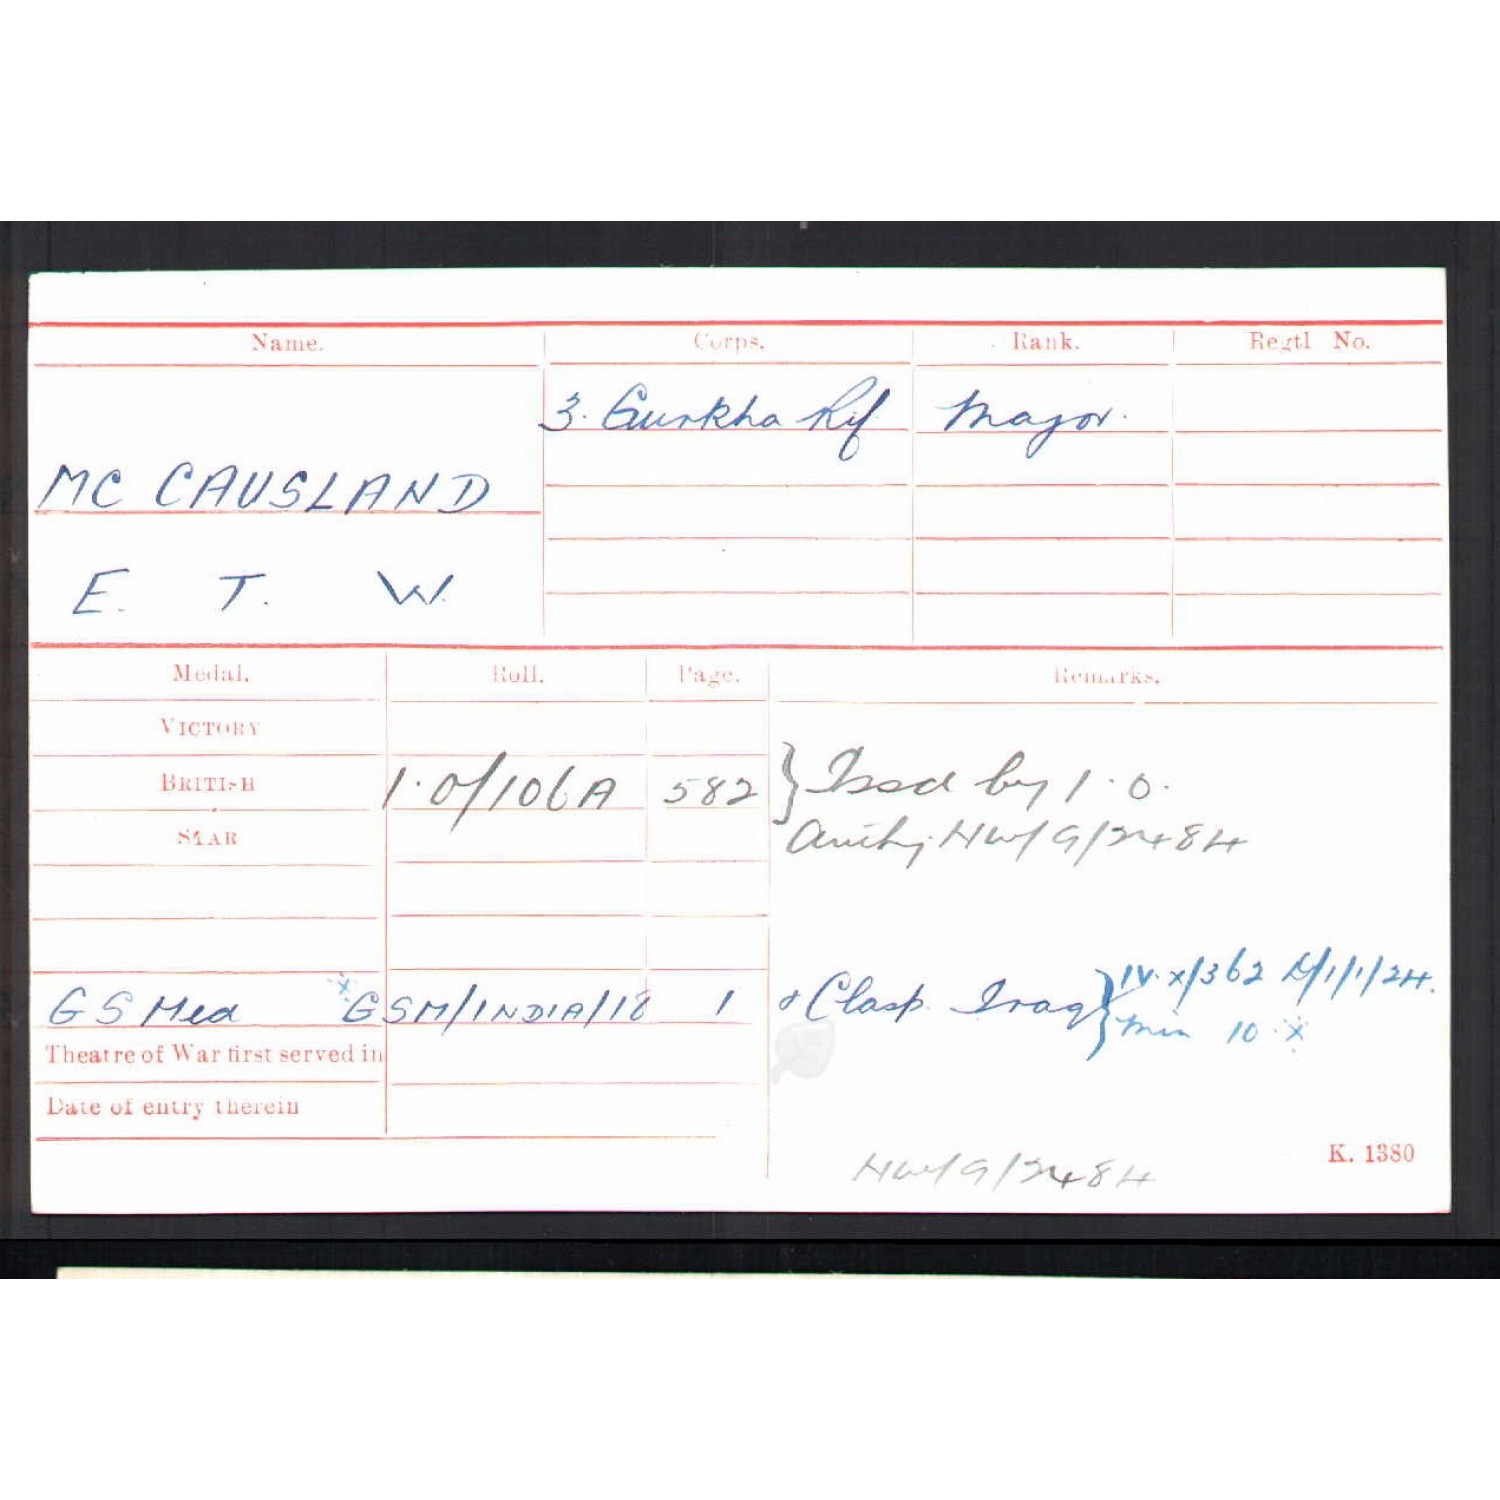 Name. Corps. Rank. Regtl No.
3. Gurkha Rif Major.
MC CAUSLAND
E. T. W.
Medal. Roll. Page. Remarks.
VICTORY
BRITISH 1.O/106A 582 } Issd by I.O.
STAR Authy NW/9/2484
GS Med x GSM/INDIA/18 1 & Clasp Iraq } IV.X/362 D/1/1/24.
Min 10 x
Theatre of War first served in
Date of entry therein
K. 1380
NW/9/2484